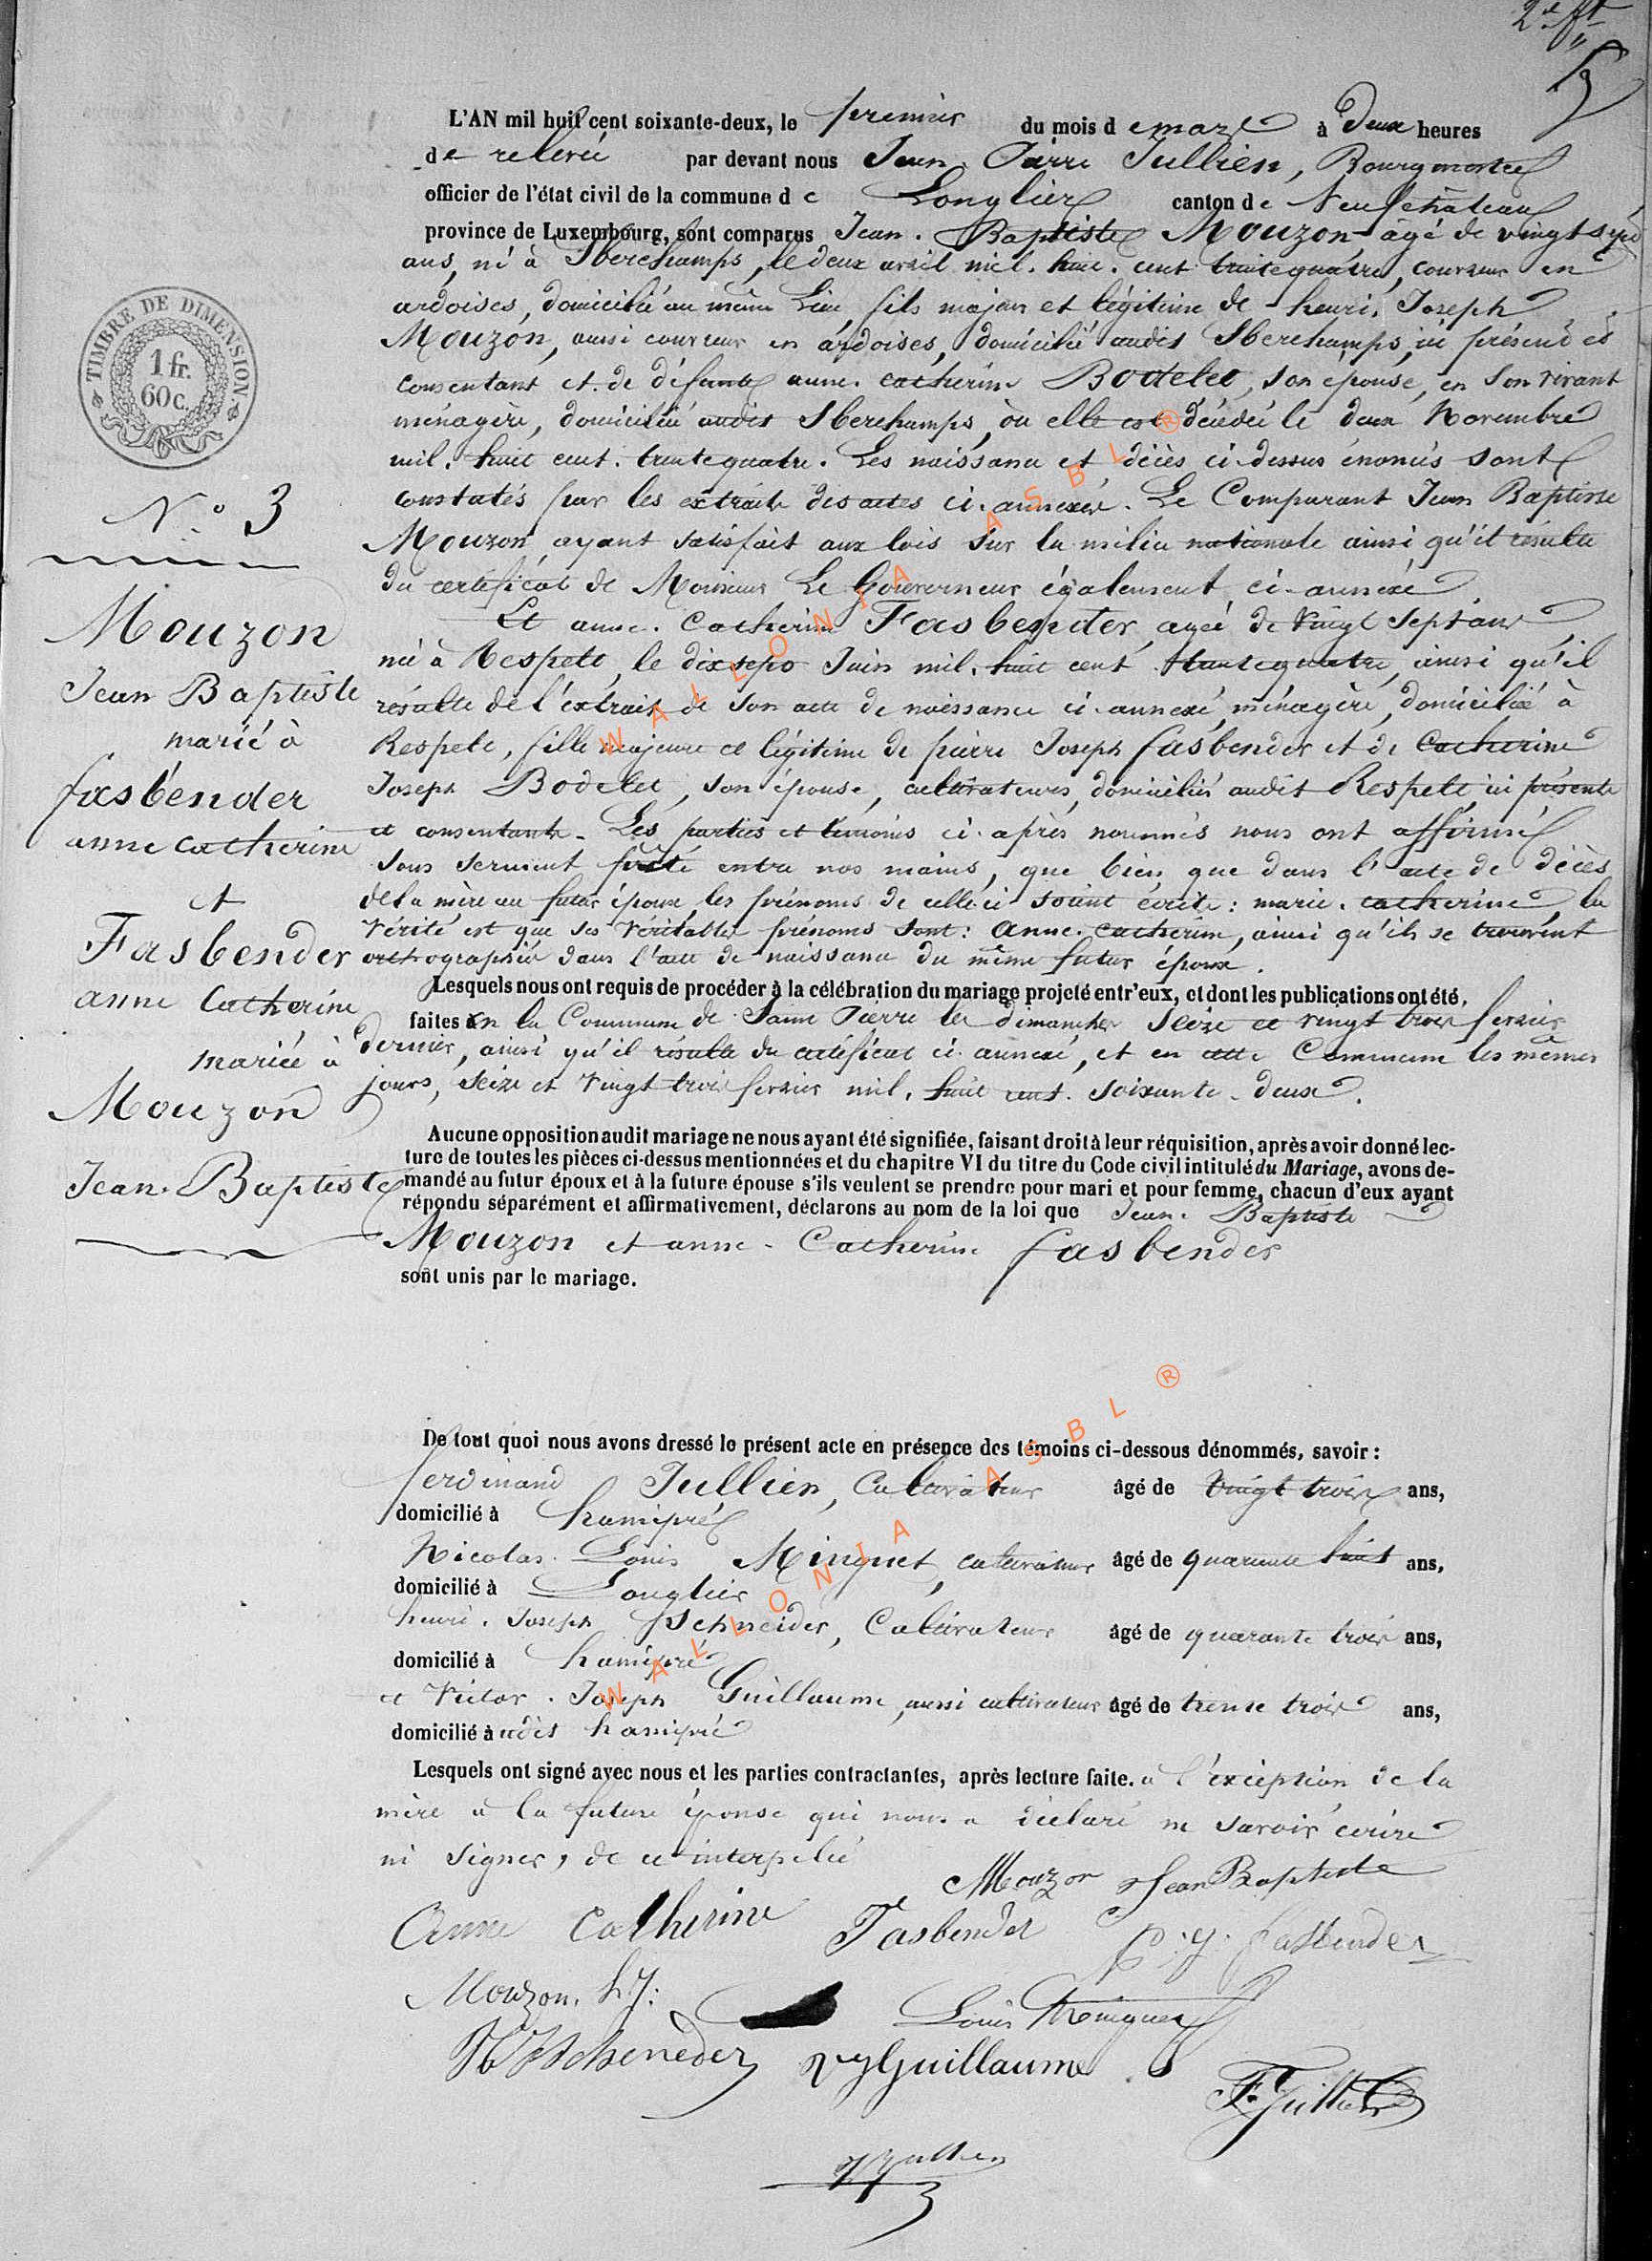 2e ft
5
L'AN mil huit cent soixante-deux, le premier du mois de mars à Deux heures
de relevée par devant nous Jean. Pierre Jullien, Bourgmestre
officier de l'état civil de la commune de Longlier canton de Neufchâteau
province de Luxembourg, sont comparus Jean. Baptiste Mouzon âgé de vingt sept
ans, né à Sberchamps, le deux avril mil. huit. cent trente quatre, couvreur en
ardoises, domicilié au même Lieu, fils majeur et légitime de henri. Joseph
Mouzon, aussi couvreur en ardoises, domicilié audit Sberchamps, ici présent et
consentant et de défunte anne. catherine Bodelet, son épouse, en son vivant
ménagère, domiciliée audit Sberchamps, où elle est décédée le deux Novembre
mil. huit cent. trente quatre. Les naissance et décès ci-dessus énoncés sont
constatés par les extraits des actes ci. annexés. Le Comparant Jean Baptiste
Mouzon, ayant satisfait aux lois sur la milice nationale ainsi qu'il résulte
du certificat de Monsieur Le Gouverneur également ci-annexé
Et anne. Catherine Fasbender, agée de vingt Septans
née à Respelt, le dix sept Juin mil. huit cent trente quatre, ainsi qu'il
résulte de l'extrait de son acte de naissance ci-annexé, ménagère, domiciliée à
Respelt, fille majeure et légitime de pierre Joseph fasbender et de Catherine
Joseph Bodelet, son épouse, cultivateurs, domiciliés audit Respelt, ici présents
et consentants. Les parties et témoins ci-après nommés nous ont affirmé
sous serment prêté entre nos mains, que bien que dans l'acte de décès
de la mère au futur époux les prénoms de celle ci soient écrits: marie. catherine, la
vérité est que ses véritables prénoms sont: anne. catherine, ainsi qu'ils se trouvent
orthographiés dans l'acte de naissance du même futur époux.
Lesquels nous ont requis de procéder à la célébration du mariage projeté entr'eux, et dont les publications ont été
faites en la Commune de Saint Pierre les dimanches Seize et vingt trois fevrier
dernier, ainsi qu'il résulte du certificat ci-annexé, et en cette Commune les mêmes
jours, Seize et vingt trois fevrier mil. huit cent. soixante-deux.
Aucune opposition audit mariage ne nous ayant été signifiée, faisant droit à leur réquisition, après avoir donné lec-
ture de toutes les pièces ci-dessus mentionnées et du chapitre VI du titre du Code civil intitulé du Mariage, avons de-
mandé au futur époux et à la future épouse s'ils veulent se prendre pour mari et pour femme, chacun d'eux ayant
répondu séparément et affirmativement, déclarons au nom de la loi que Jean. Baptiste
Mouzon et anne-Catherine fasbender
sont unis par le mariage.
De tout quoi nous avons dressé le présent acte en présence des témoins ci-dessous dénommés, savoir :
ferdinand Jullien, Cultivateur âgé de vingt trois ans,
domicilié à hamipré
Nicolas. Louis Minguet, cultivateur âgé de quarante huit ans,
domicilié à Longlier
henri. Joseph Schneider, Cultivateur âgé de quarante trois ans,
domicilié à hamipré
et Victor. Joseph Guillaume, aussi cultivateur âgé de trente trois ans,
domicilié à udit hamipré
Lesquels ont signé avec nous et les parties contractantes, après lecture faite. à l'exception de la
mère à la future épouse qui nous a déclaré ne savoir écrire
ni signer, de ce interpelée
Mouzon Jean Baptiste
Anne Catherine Fasbender P. J. Fasbender
Mouzon. h J: Louis Minguet
HJScheneder VJGuillaume
F. Jullien
JPJullien
TIMBRE DE DIMENSION.
1 fr.
60 c.
N.o 3
Mouzon
Jean Baptiste
marié à
fasbender
anne catherine
et
Fasbender
anne Catherine
mariée à
Mouzon
Jean. Baptiste
WALLONIA ASBL ®
WALLONIA ASBL ®